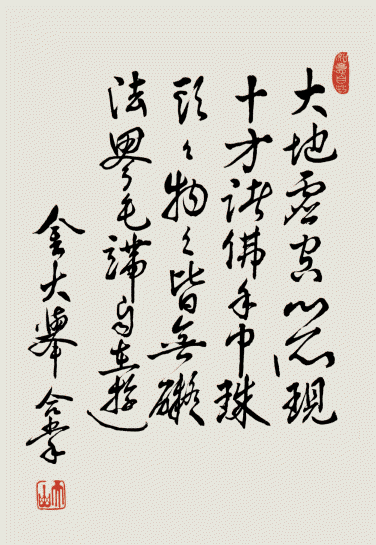 大地虛空心所現
十方諸佛手中珠
頭〻物〻皆無礙
法界毛端自在遊
金大擧 合掌